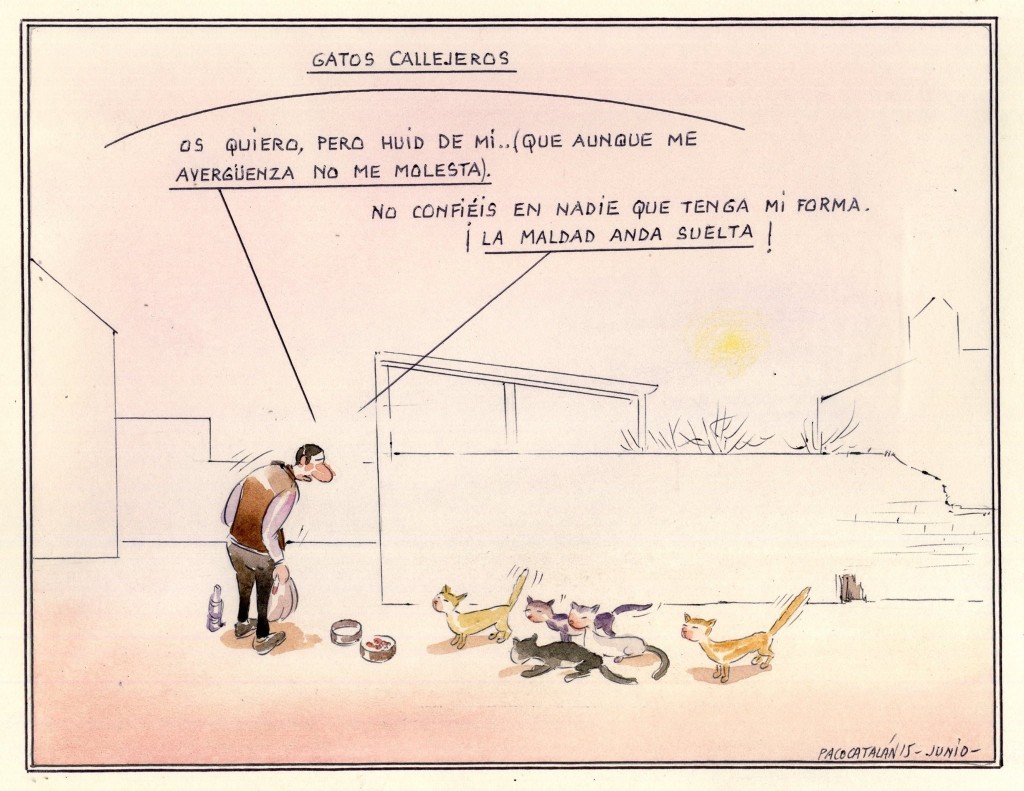 GATOS CALLEJEROS
OS QUIERO, PERO HUID DE MÍ..(QUE AUNQUE ME
AVERGÜENZA NO ME MOLESTA).
NO CONFIÉIS EN NADIE QUE TENGA MI FORMA.
¡LA MALDAD ANDA SUELTA!
PACOCATALÁN15-JUNIO-